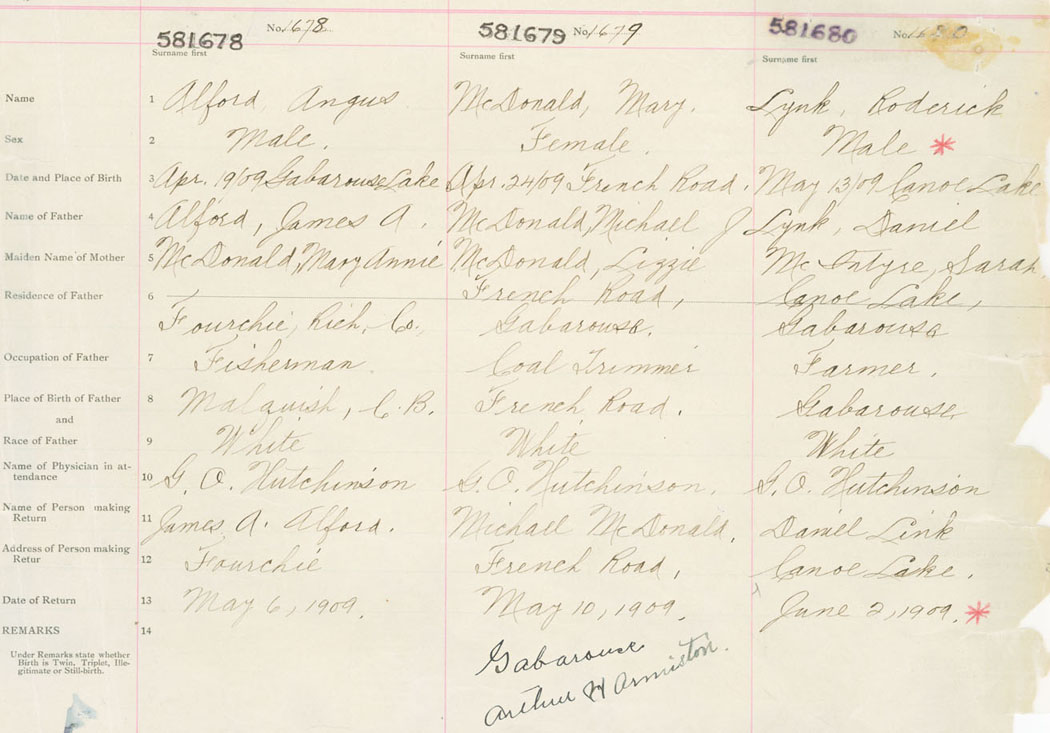 581678 No. 1678 581679 No. 1679 581680 No. 1680
Surname first Surname first Surname first
Name 1 Alford, Angus McDonald, Mary. Lynk, Roderick
Sex 2 Male. Female. Male *
Date and Place of Birth 3 Apr. 19/09 Gabarouse Lake Apr. 24/09 French Road. May 13/09 Canoe Lake
Name of Father 4 Alford, James A. McDonald, Michael J Lynk, Daniel
Maiden Name of Mother 5 McDonald, Mary Annie McDonald, Lizzie McIntyre, Sarah
Residence of Father 6 French Road, Canoe Lake,
Fourchie, Rich. Co., Gabarouse. Gabarouse
Occupation of Father 7 Fisherman Coal Trimmer Farmer.
Place of Birth of Father 8 Malquish, C.B. French Road. Gabarouse
and
Race of Father 9 White White White
Name of Physician in at-
tendance 10 G. O. Hutchinson G. O. Hutchinson. G. O. Hutchinson
Name of Person making
Return 11 James A. Alford. Michael McDonald, Daniel Link
Address of Person making
Retur 12 Fourchie French Road, Canoe Lake.
Date of Return 13 May 6, 1909. May 10, 1909. June 2, 1909. *
REMARKS 14
Under Remarks state whether
Birth is Twin, Triplet, Ille-
gitimate or Still-birth.
Gabarouse
Arthur H Armiston.